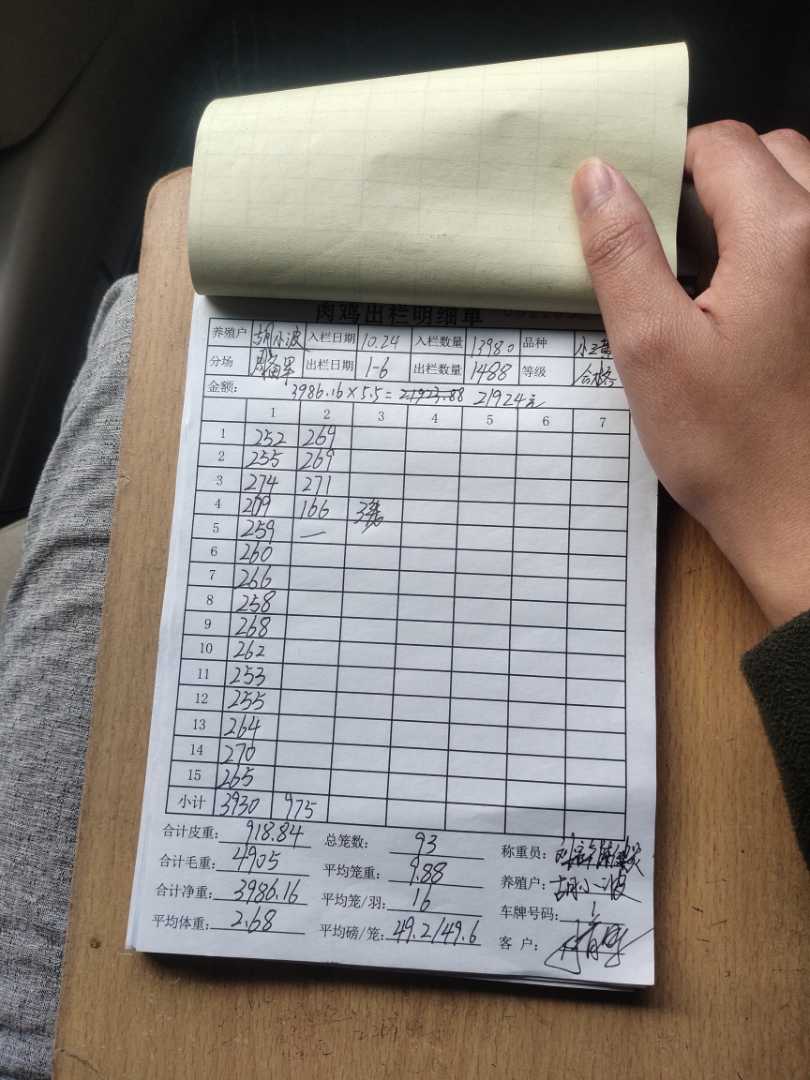 肉鸡出栏明细单
养殖户 胡小波 入栏日期 10.24 入栏数量 13980 品种
分场 出栏日期 1-6 出栏数量 1488 等级 合格
金额: 3986.16×5.5=21923.88 21924元
1 2 3 4 5 6 7
1 252 269
2 255 269
3 274 271
4 209 166
5 259 —
6 260
7 266
8 258
9 268
10 262
11 253
12 255
13 264
14 270
15 265
小计 3930 975
合计皮重: 918.84 总笼数: 93 称重员:
合计毛重: 4905 平均笼重: 9.88 养殖户: 胡小波
合计净重: 3986.16 平均笼/羽: 16 车牌号码: 1
平均体重: 2.68 平均磅/笼: 49.2/49.6 客户: